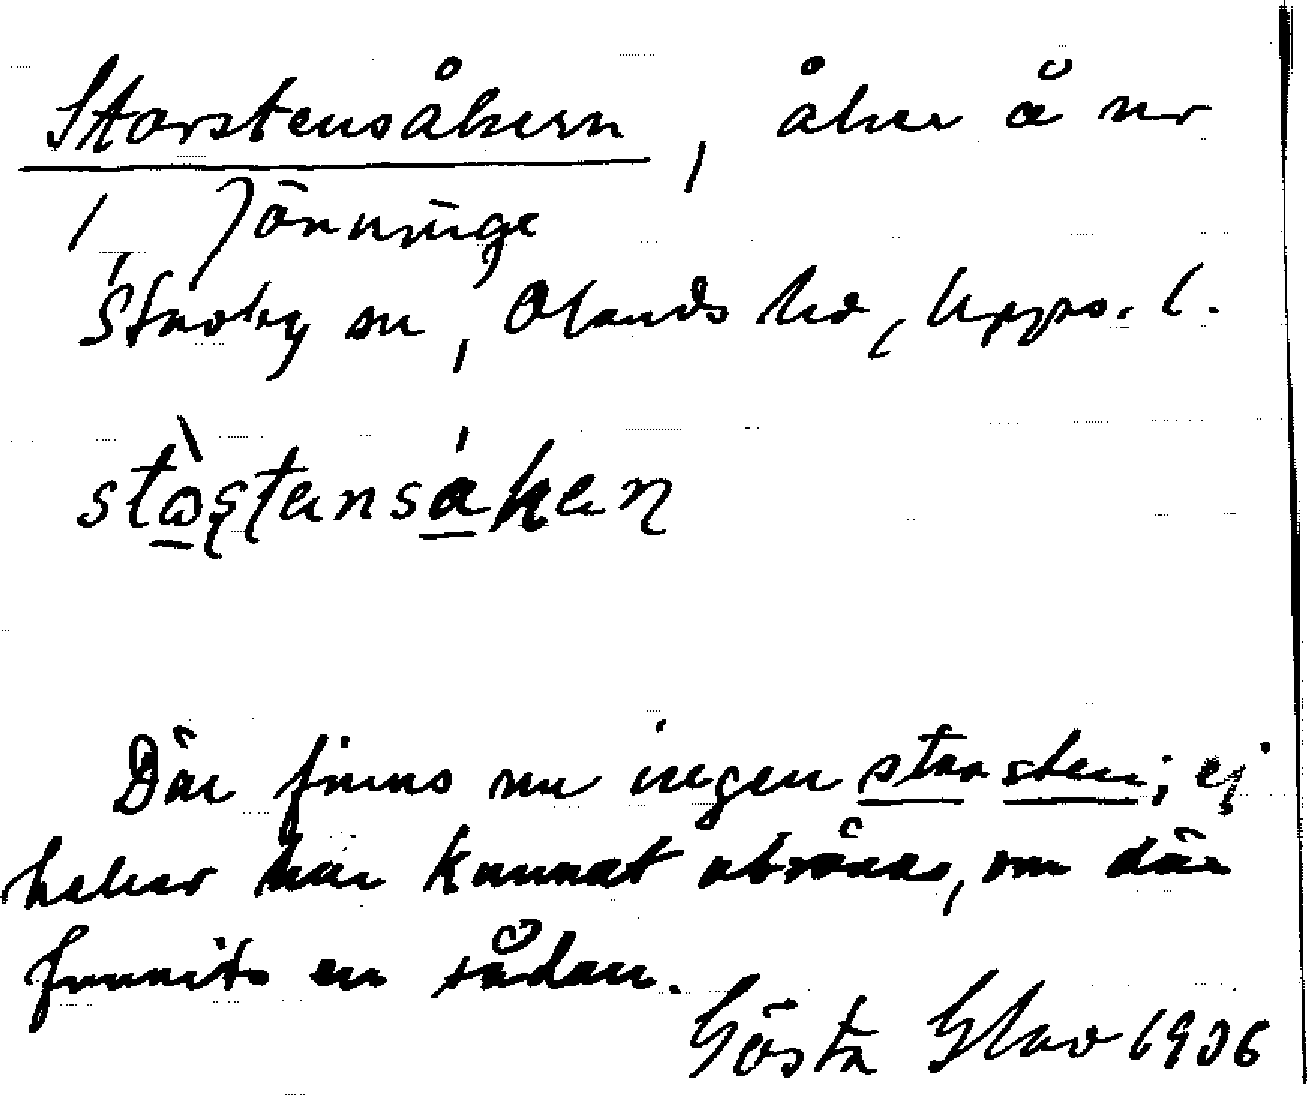 Storstensåkern, åker å nr
1, Jönninge
Stavby sn, Olands hd, Upps. l.
stɷstensakeɳ
Där finns nu ingen stor sten; ej
heller har kunnat utrönas, om där
funnits en sådan.
Gösta Glav 1936